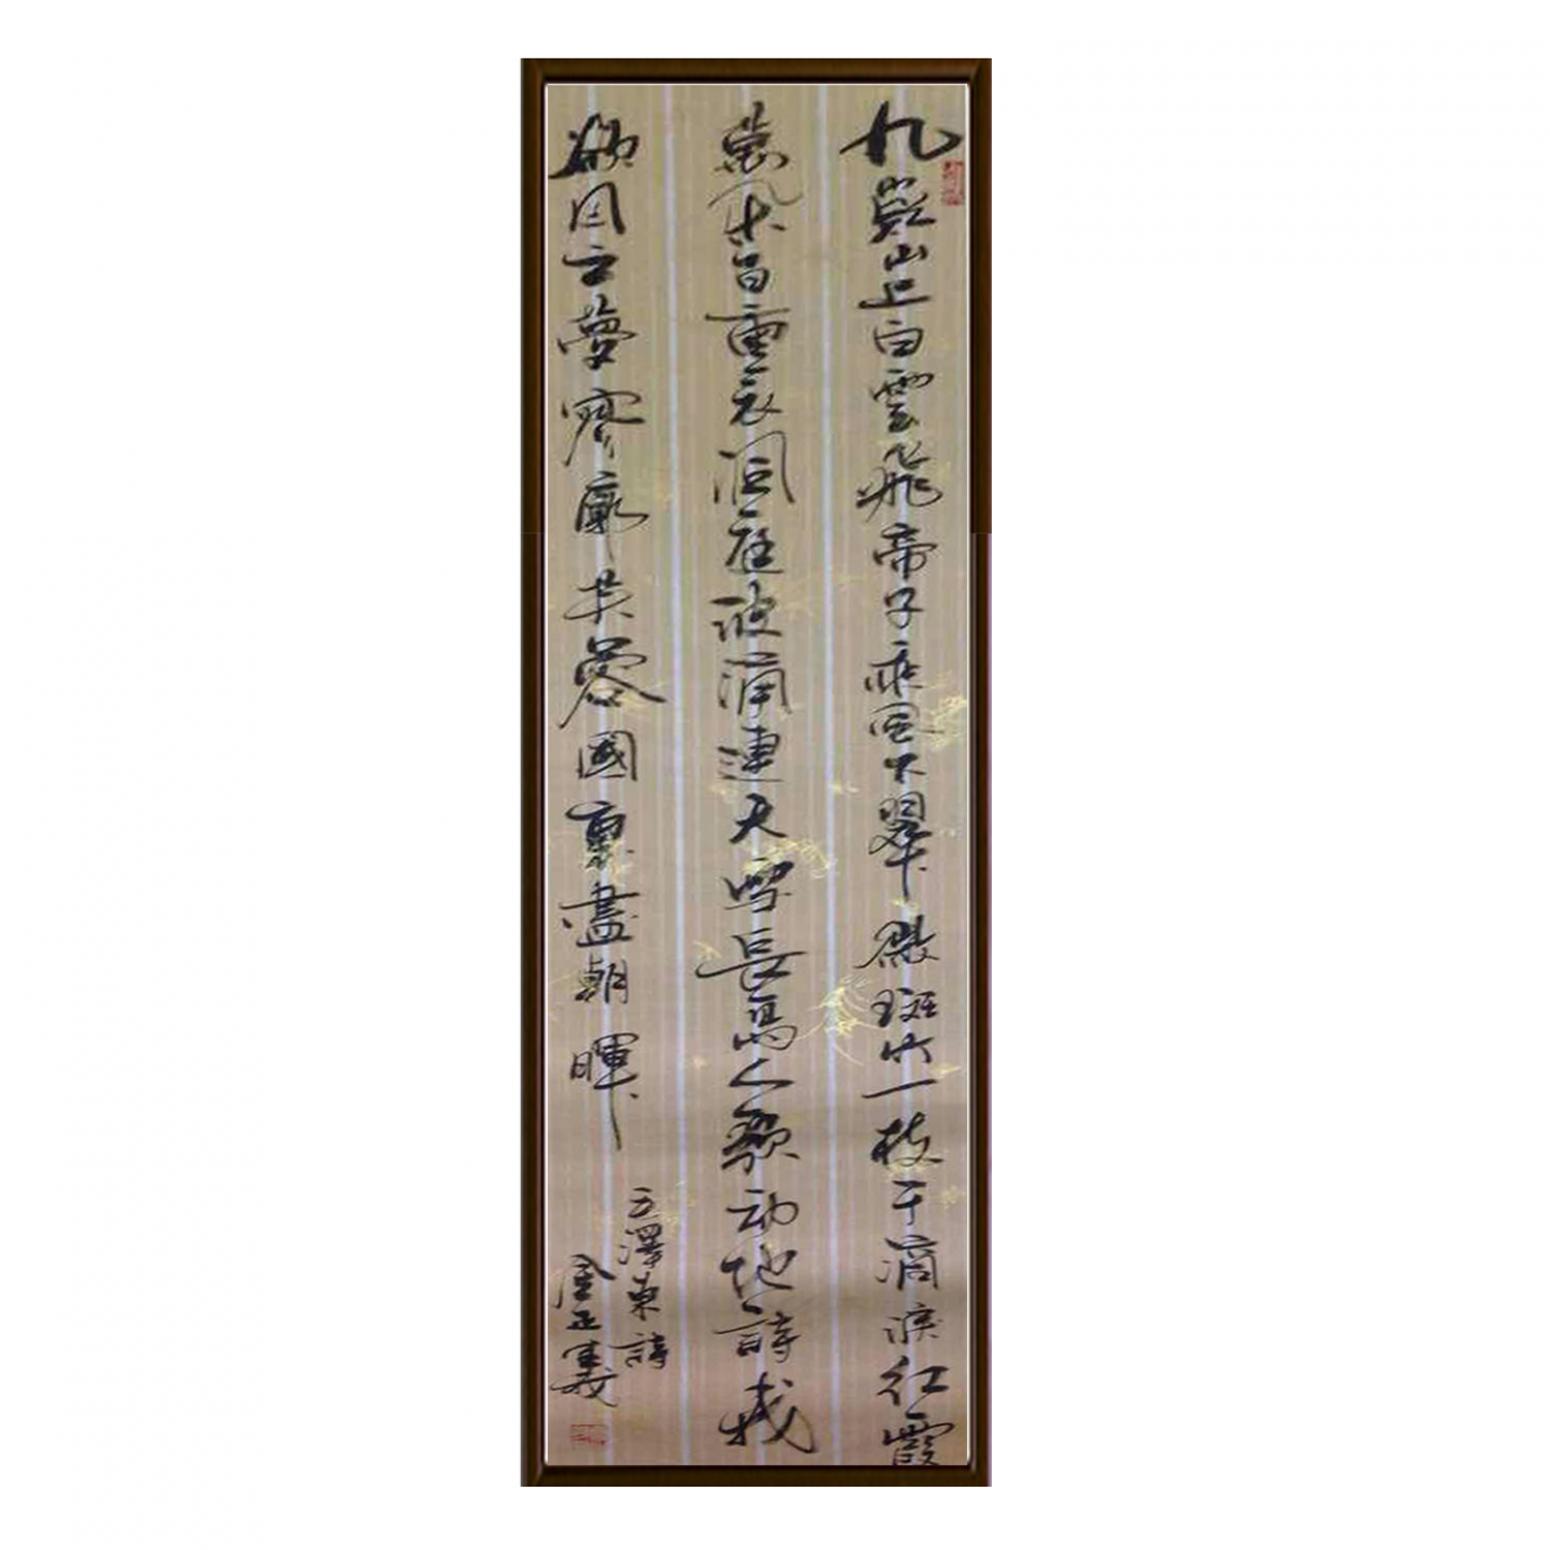 九嶷山上白雲飛帝子乘風下翠微斑竹一枝千滴淚紅霞
萬朵百重衣洞庭波涌連天雪長島人歌动地詩我
欲因之夢寥廓芙蓉國裏盡朝暉
毛澤東詩
金正義